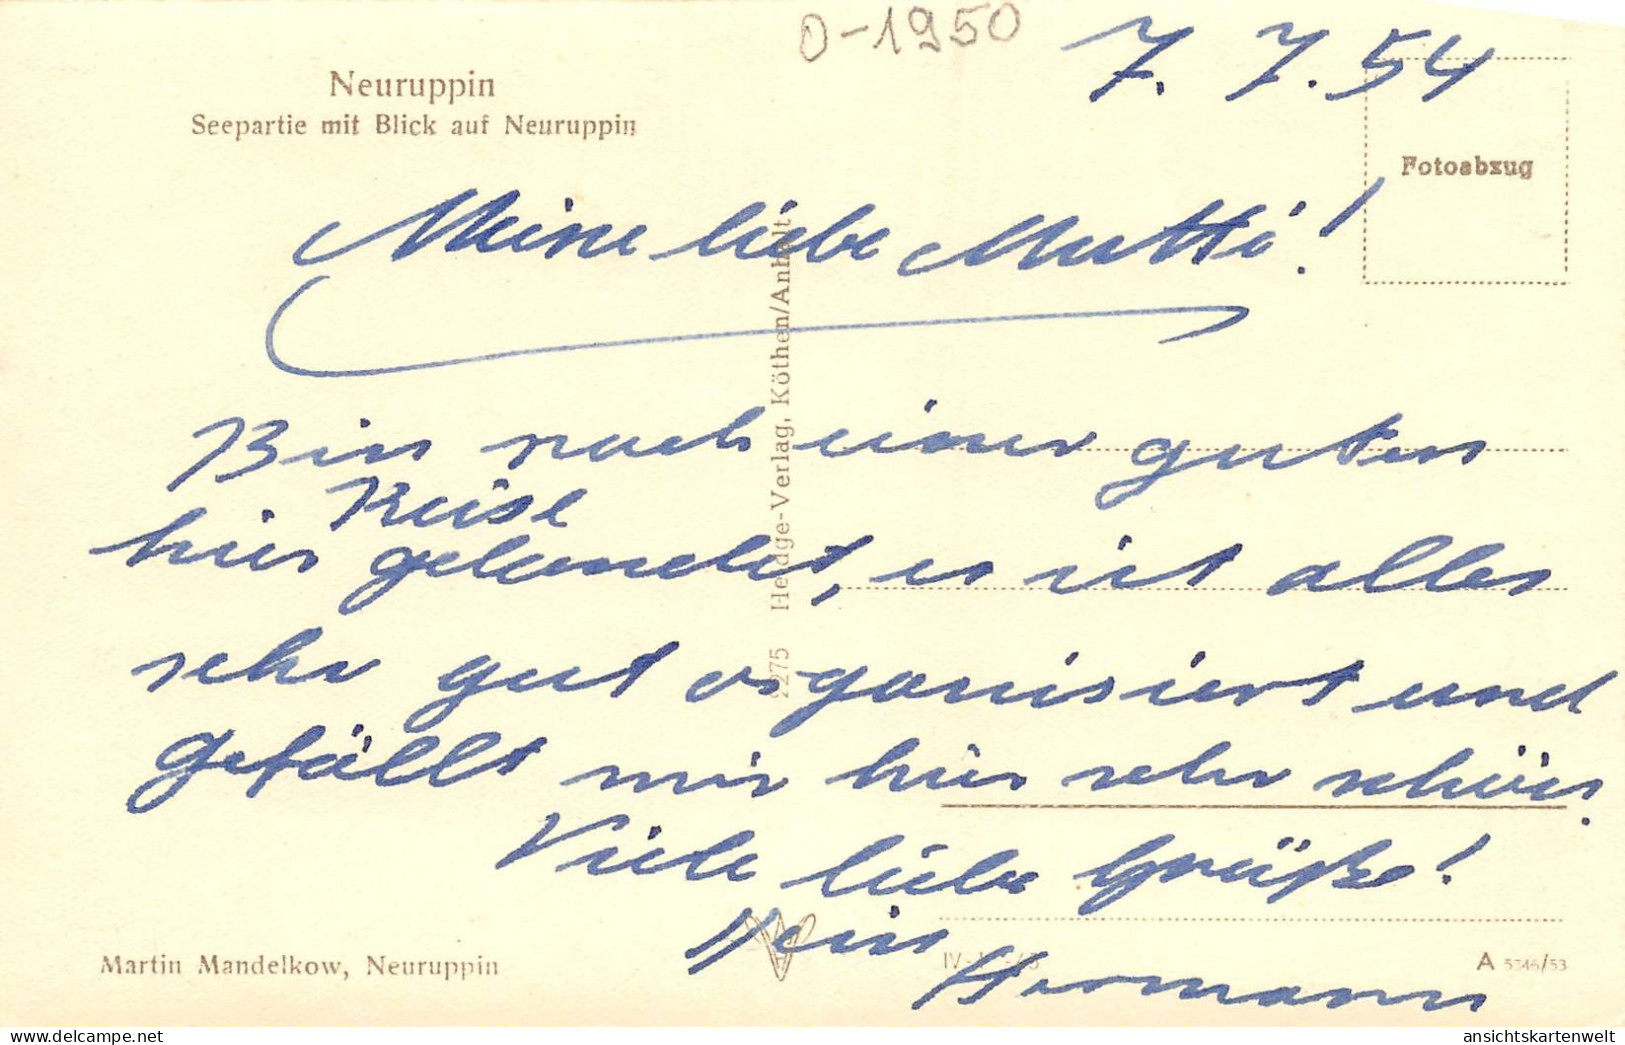 0-1950
7. 7. 54
Neuruppin
Seepartie mit Blick auf Neuruppin
Fotoabzug
Meine liebe Mutti!
Bin nach einer guten
Reise
hier gelandet, es ist alles
sehr gut organisiert und
gefällt mir hier sehr schön.
Viele liebe Grüße!
Dein
Hermann
Heldge-Verlag, Köthen/Anhalt
Martin Mandelkow, Neuruppin
A 5346/53
ansichtskartenwelt